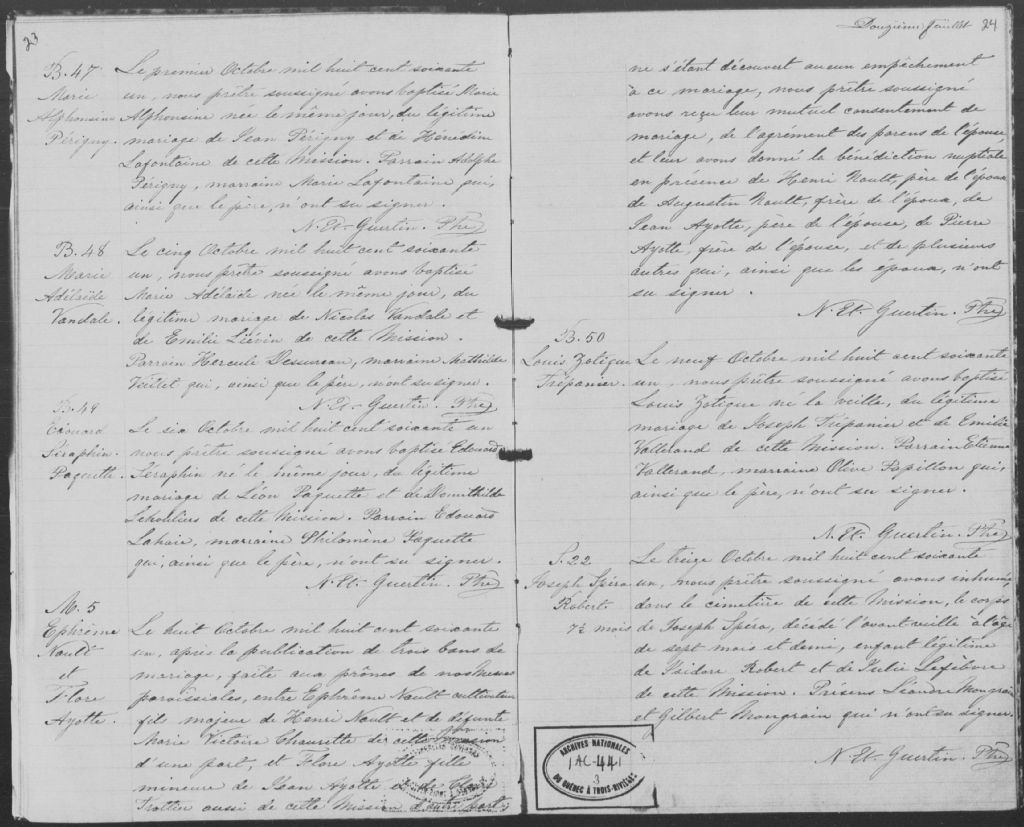 23
B. 47
Marie
Alphonsine
Périgny.
Le premier Octobre mil huit cent soixante
un, nous prêtre soussigné avons baptisé Marie
Alphonsine née le même jour, du légitime
mariage de Jean Périgny et de Hénédine
Lafontaine de cette Mission. Parrain Adolphe
Périgny, marraine Marie Lafontaine qui,
ainsi que le père, n'ont su signer.
N. Et. Guertin. Ptre
B. 48
Marie
Adélaïde
Vandale.
Le cinq Octobre mil huit cent soixante
un, nous prêtre soussigné avons baptisé
Marie Adélaïde née le même jour, du
légitime mariage de Nicolas Vandale et
de Emilie Liévin de cette Mission.
Parrain Hercule Dessureau, marraine Mathilde
qui, ainsi que le père, n'ont su signer.
N. Et. Guertin. Ptre
B. 49
Edouard
Séraphin
Paquette.
Le six Octobre mil huit cent soixante un
nous prêtre soussigné avons baptisé Edouard
Séraphin né le même jour, du légitime
mariage de Léon Paquette et de Domithilde
de cette Mission. Parrain Edouard
Lahaie, marraine Philomène Paquette
qui, ainsi que le père, n'ont su signer.
N. Et. Guertin. Ptre
M. 5
Ephrême
Nault
et
Flore
Ayotte.
Le huit Octobre mil huit cent soixante
un, après la publication de trois bans de
mariage, faite aux prônes de nos Messes
paroissiales, entre Ephrême Nault cultivateur
fils majeur de Henri Nault et de défunte
Marie Victoire Chaurette de cette Mission
d'une part, et Flore Ayotte fille
mineure de Jean Ayotte et de
Trottier aussi de cette Mission d'autre part;
Douzième feuillet 24
ne s'étant découvert aucun empêchement
à ce mariage, nous prêtre soussigné
avons reçu leur mutuel consentement de
mariage, de l'agrément des parens de l'épouse
et leur avons donné la bénédiction nuptiale
en présence de Henri Nault, père de l'époux
de Augustin Nault, frère de l'époux, de
Jean Ayotte, père de l'épouse, de Pierre
Ayotte, frère de l'épouse, et de plusieurs
autres qui, ainsi que les époux, n'ont
su signer.
N. Et. Guertin. Ptre
B. 50
Louis Zotique
Trépanier.
Le neuf Octobre mil huit cent soixante
un, nous prêtre soussigné avons baptisé
Louis Zotique né la veille, du légitime
mariage de Joseph Trépanier et de Emilie
Vallerand de cette Mission. Parrain Etienne
Vallerand, marraine Olive Papillon qui,
ainsi que le père, n'ont su signer.
N. Et. Guertin. Ptre
S. 22
Joseph Spéra
Robert.
7½ mois
Le treize Octobre mil huit cent soixante
un, nous prêtre soussigné avons inhumé
dans le cimetière de cette Mission, le corps
de Joseph Spéra, décédé l'avant veille à l'âge
de sept mois et demi, enfant légitime
de Isidore Robert et de Julie Lefebvre
de cette Mission. Présens Léandre Mongrain
et Gilbert Mongrain qui n'ont su signer.
N. Et. Guertin. Ptre
ARCHIVES NATIONALES
AC-441
3
DU QUÉBEC À TROIS-RIVIÈRES